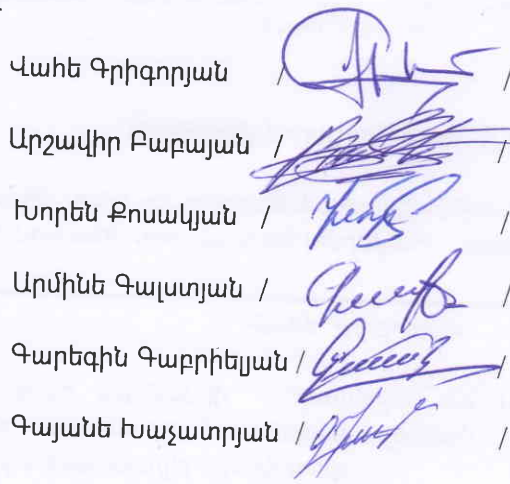 Վահե Գրիգորյան / /
Արշավիր Բաբայան / /
Խորեն Քոսակյան / /
Արմինե Գալստյան / /
Գարեգին Գաբրիելյան / /
Գայանե Խաչատրյան / /